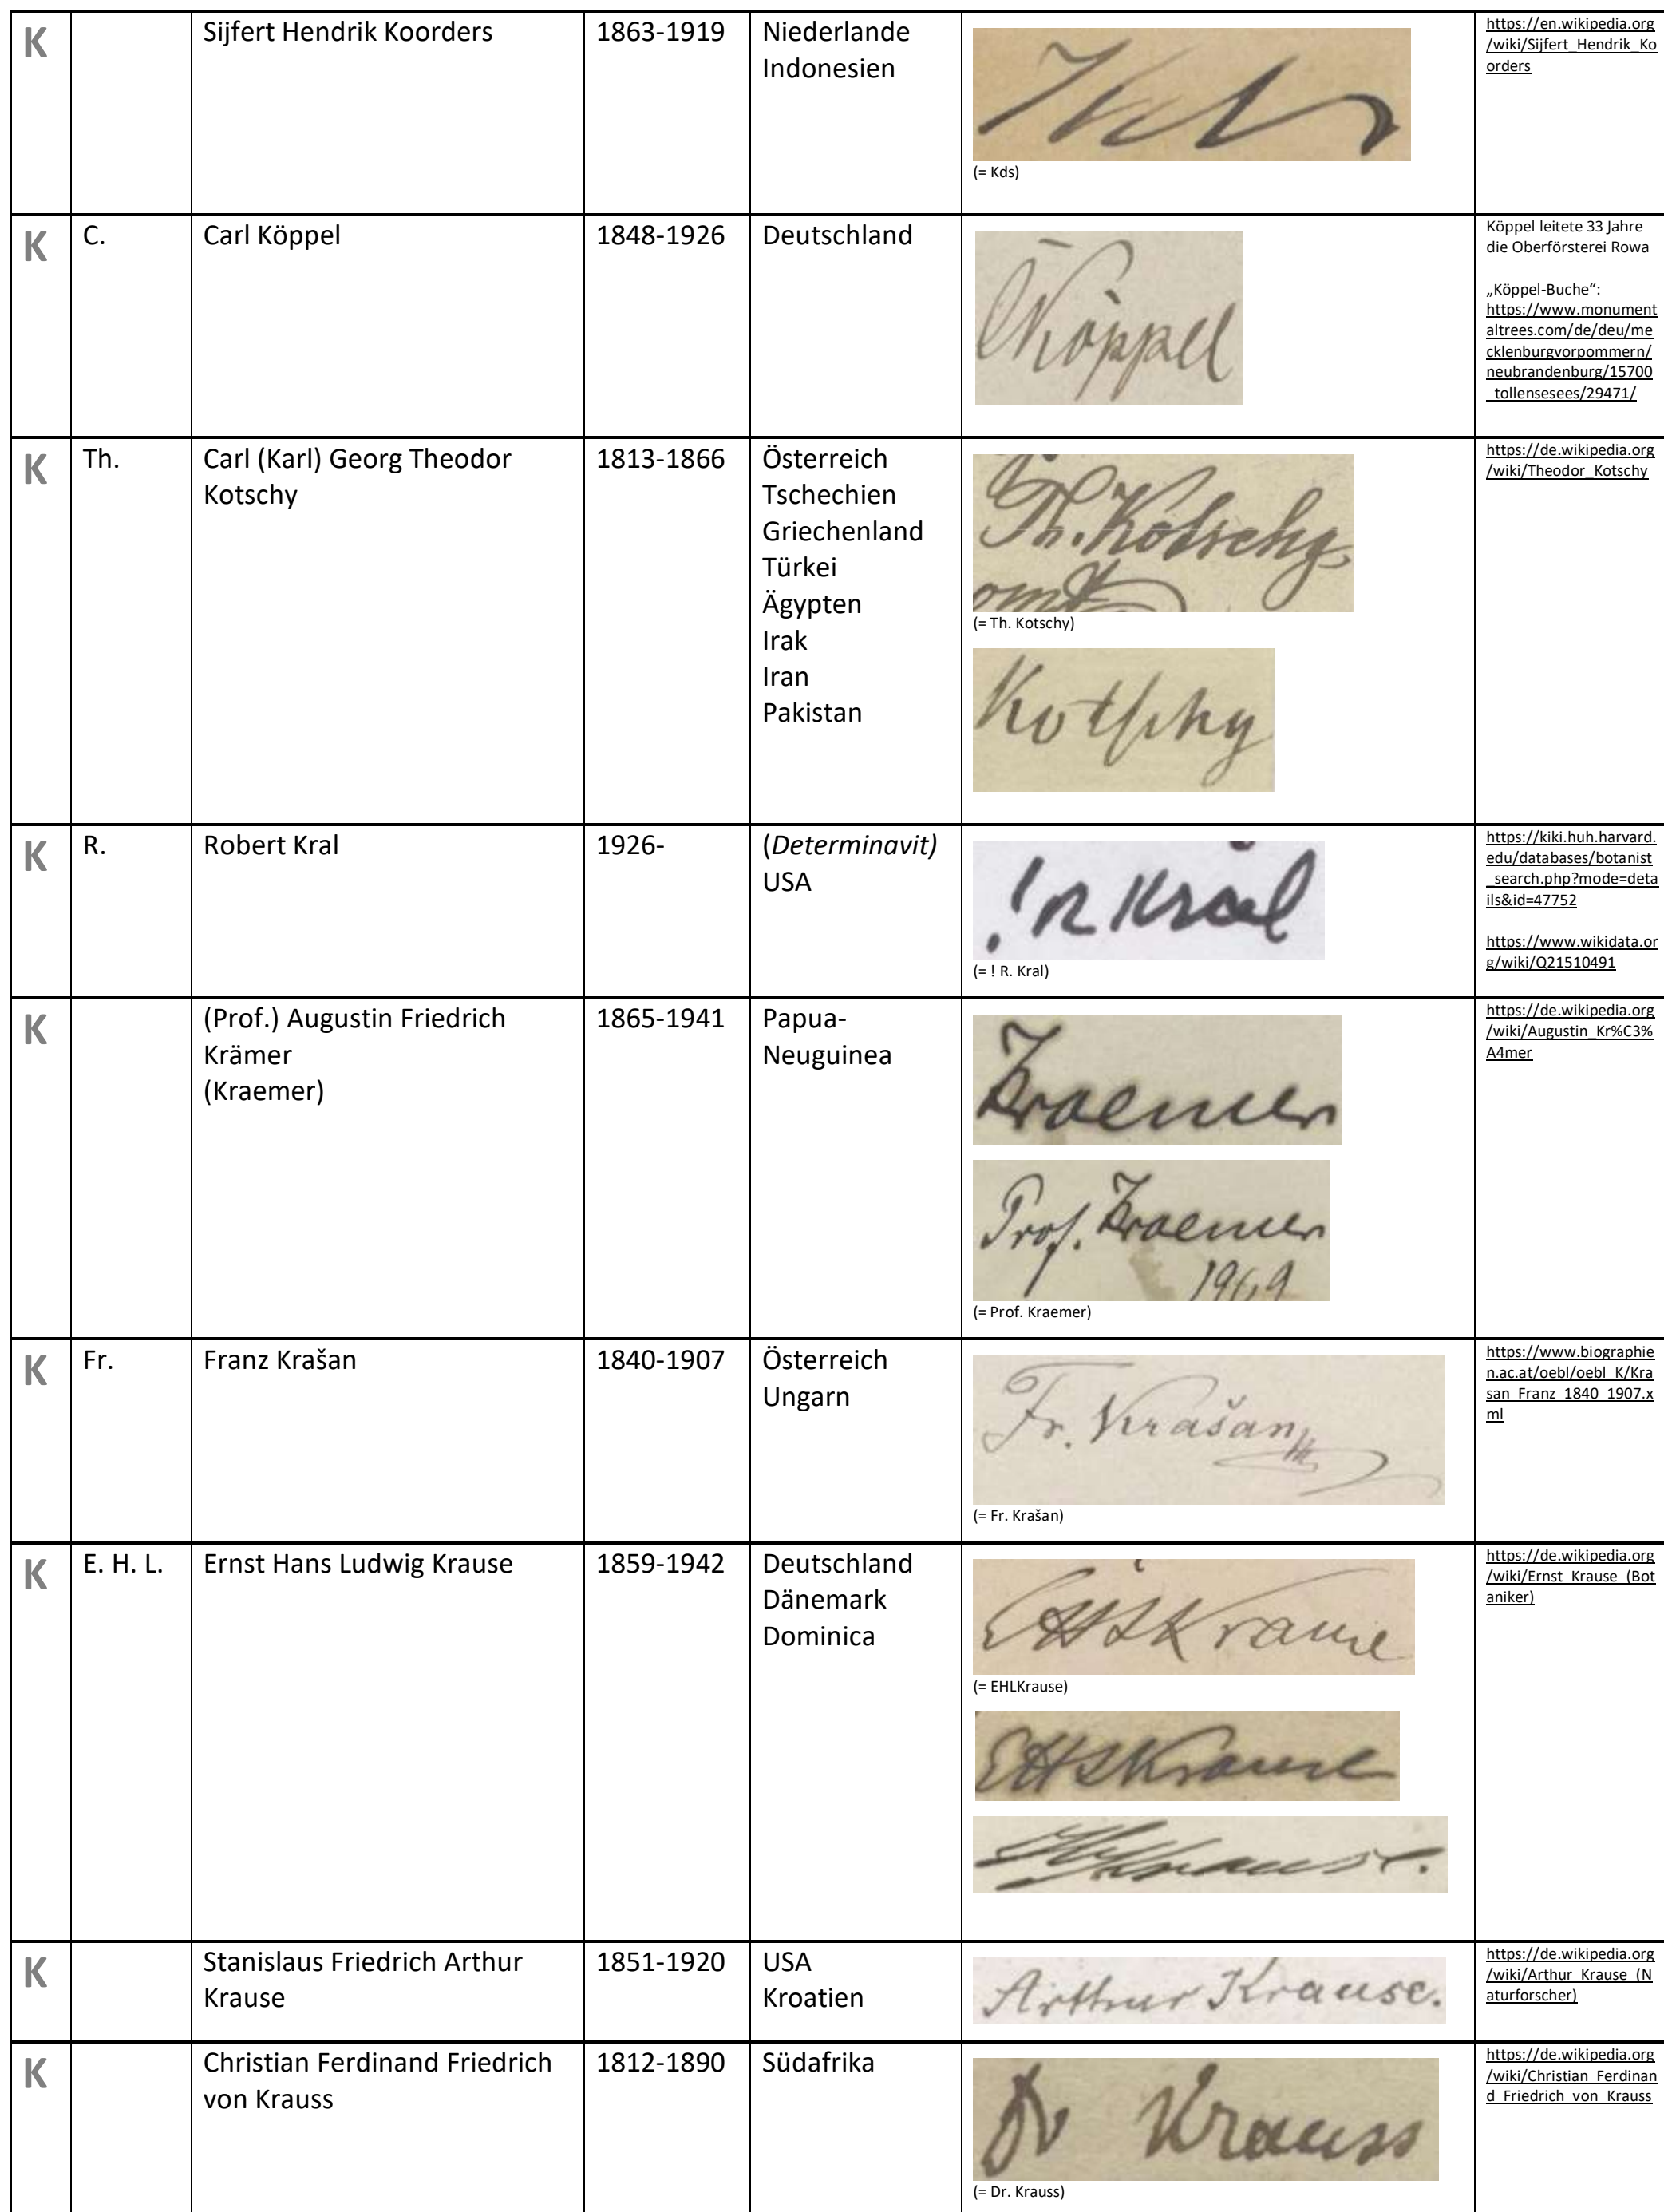 K
Sijfert Hendrik Koorders
1863-1919
Niederlande
Indonesien
(= Kds)
https://en.wikipedia.org
/wiki/Sijfert_Hendrik_Ko
orders
K
C.
Carl Köppel
1848-1926
Deutschland
CKöppel
Köppel leitete 33 Jahre
die Oberförsterei Rowa
„Köppel-Buche“:
https://www.monument
altrees.com/de/deu/me
cklenburgvorpommern/
neubrandenburg/15700
_tollensesees/29471/
K
Th.
Carl (Karl) Georg Theodor
Kotschy
1813-1866
Österreich
Tschechien
Griechenland
Türkei
Ägypten
Irak
Iran
Pakistan
Th. Kotschy
(= Th. Kotschy)
Kotschy
https://de.wikipedia.org
/wiki/Theodor_Kotschy
K
R.
Robert Kral
1926-
(Determinavit)
USA
! R Kral
(= ! R. Kral)
https://kiki.huh.harvard.
edu/databases/botanist
_search.php?mode=deta
ils&id=47752
https://www.wikidata.or
g/wiki/Q21510491
K
(Prof.) Augustin Friedrich
Krämer
(Kraemer)
1865-1941
Papua-
Neuguinea
Kraemer
Prof. Kraemer
(= Prof. Kraemer)
https://de.wikipedia.org
/wiki/Augustin_Kr%C3%
A4mer
K
Fr.
Franz Krašan
1840-1907
Österreich
Ungarn
Fr. Krašan
(= Fr. Krašan)
https://www.biographie
n.ac.at/oebl/oebl_K/Kra
san_Franz_1840_1907.x
ml
K
E. H. L.
Ernst Hans Ludwig Krause
1859-1942
Deutschland
Dänemark
Dominica
EHLKrause
(= EHLKrause)
EHLKrause
Krause.
https://de.wikipedia.org
/wiki/Ernst_Krause_(Bot
aniker)
K
Stanislaus Friedrich Arthur
Krause
1851-1920
USA
Kroatien
Arthur Krause.
https://de.wikipedia.org
/wiki/Arthur_Krause_(N
aturforscher)
K
Christian Ferdinand Friedrich
von Krauss
1812-1890
Südafrika
Dr Krauss
(= Dr. Krauss)
https://de.wikipedia.org
/wiki/Christian_Ferdinan
d_Friedrich_von_Krauss